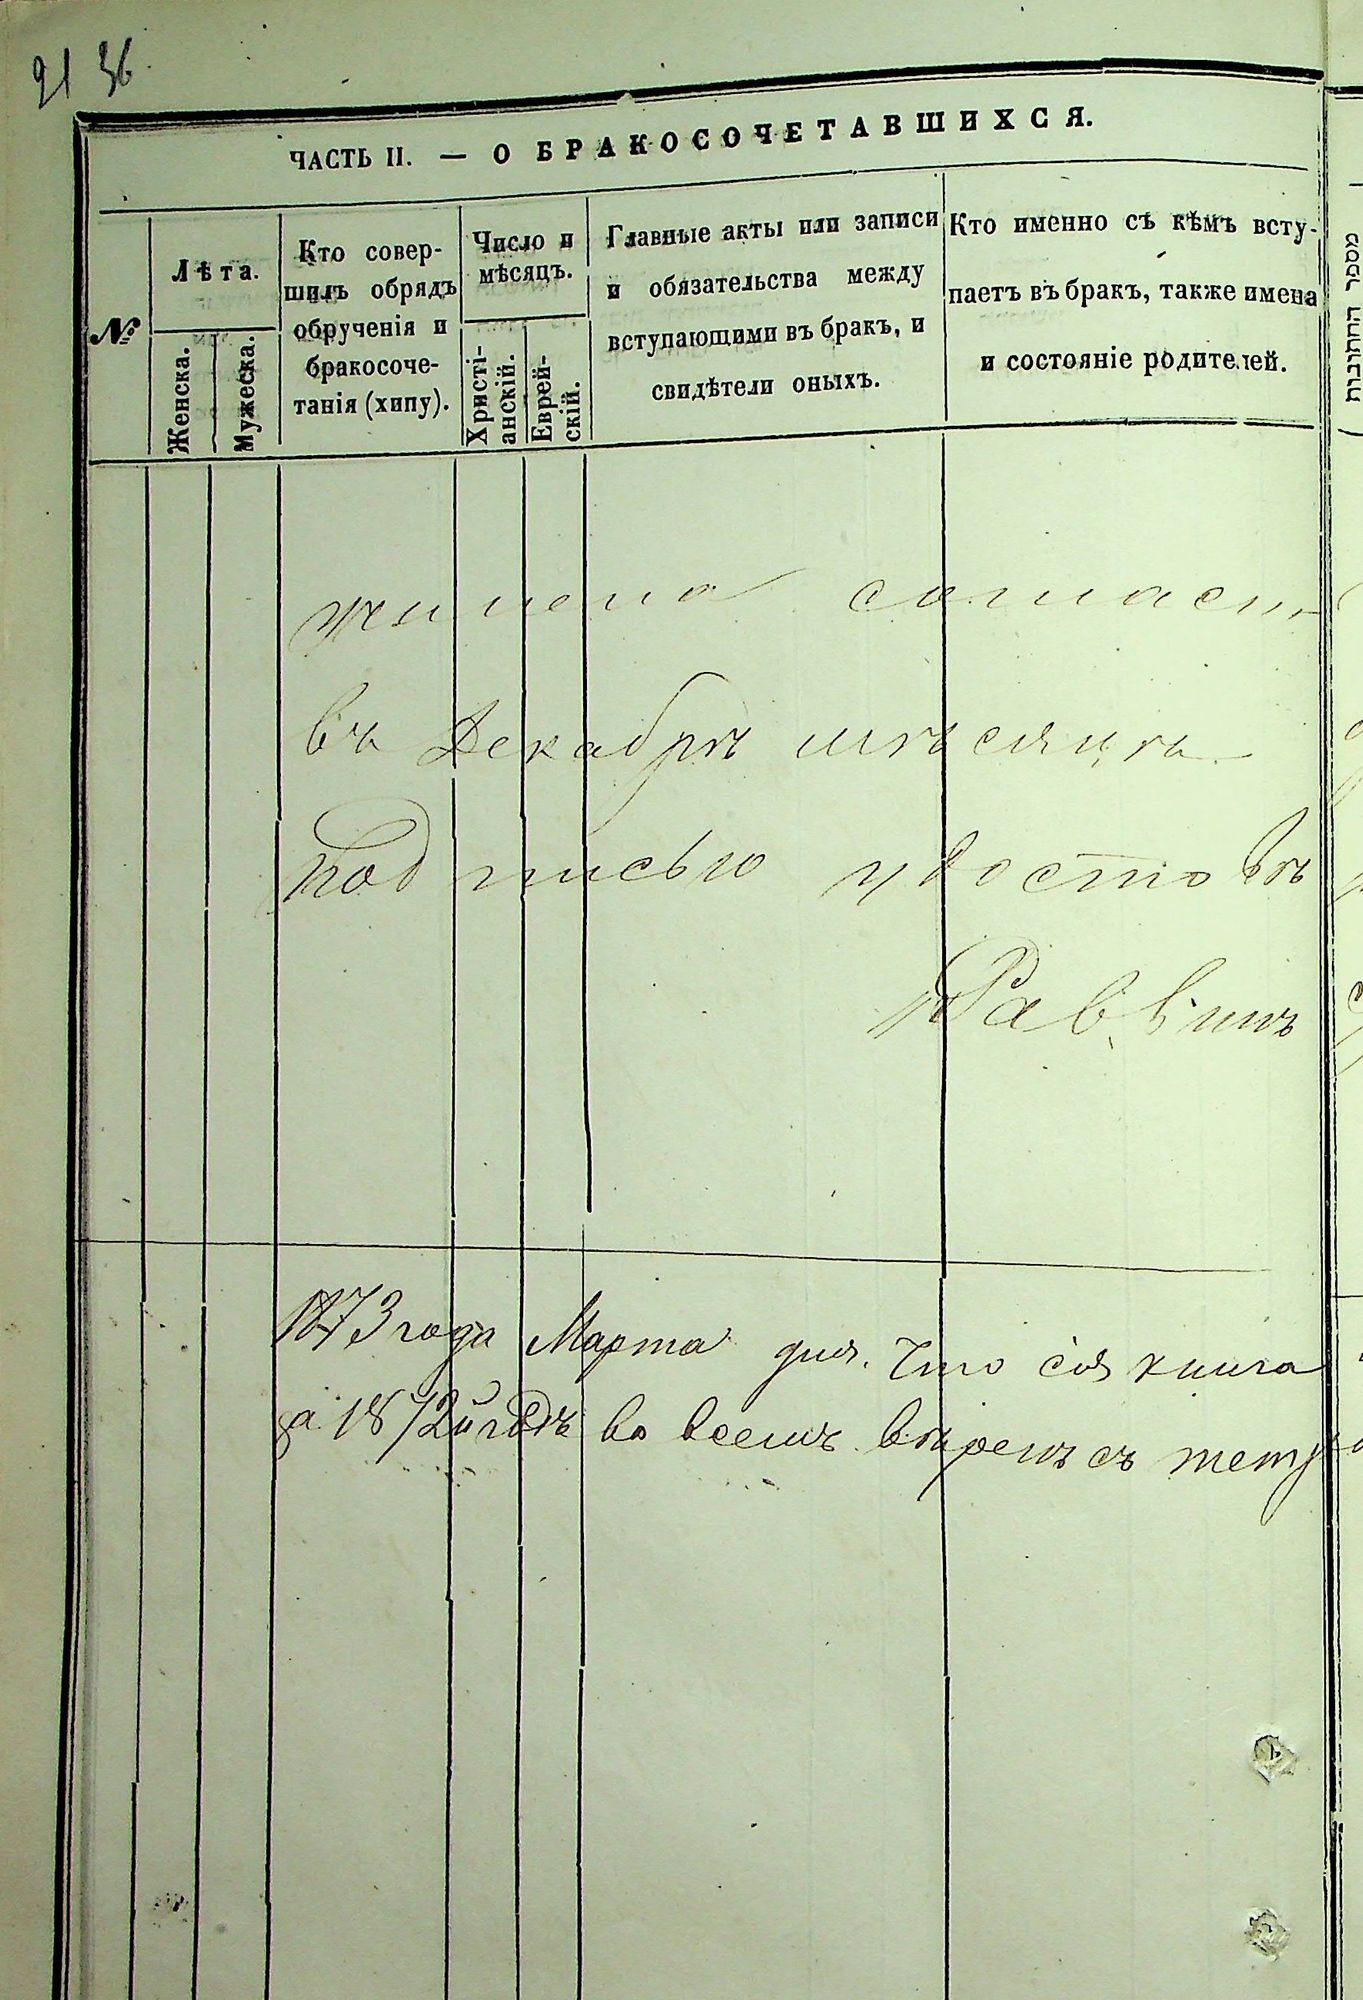 21 36
ЧАСТЬ II. — О БРАКОСОЧЕТАВШИХСЯ.
№
Лѣта.
Женска.
Мужеска.
Кто совер-
шилъ обрядъ
обрученія и
бракосоче-
танія (хипу).
Число и
мѣсяцъ.
Христі-
анскій.
Еврей-
скій.
Главные акты или записи
и обязательства между
вступающими въ бракъ, и
свидѣтели оныхъ.
Кто именно съ кѣмъ всту-
паетъ въ бракъ, также имена
и состояніе родителей.
מספר החתונות
въ Декабрѣ мѣсяцѣ
подписью удостовѣ
Раввинъ
1873 года Марта дня. Что сія книга
за 1872й годъ во всемъ вѣренъ съ тетр